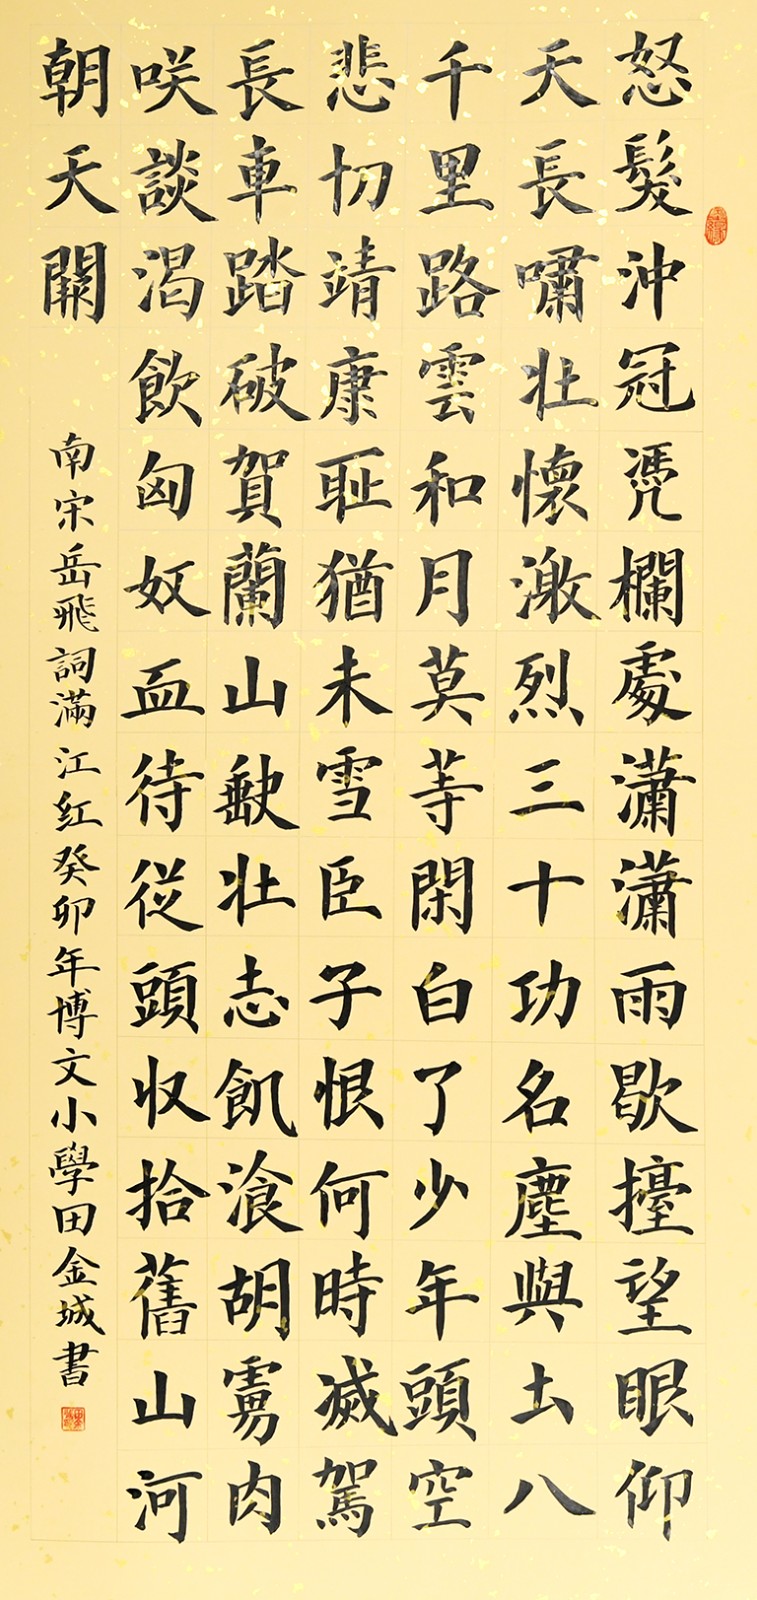 怒髮沖冠凴欄處瀟瀟雨歇擡望眼仰
天長嘯壯懷激烈三十功名塵與圡八
千里路雲和月莫等閑白了少年頭空
悲切靖康耻猶未雪臣子恨何時滅駕
長車踏破賀蘭山缺壯志飢湌胡虜肉
咲談渴飲匈奴血待從頭収拾舊山河
朝天闕
南宋岳飛詞滿江红癸卯年博文小學田金城書